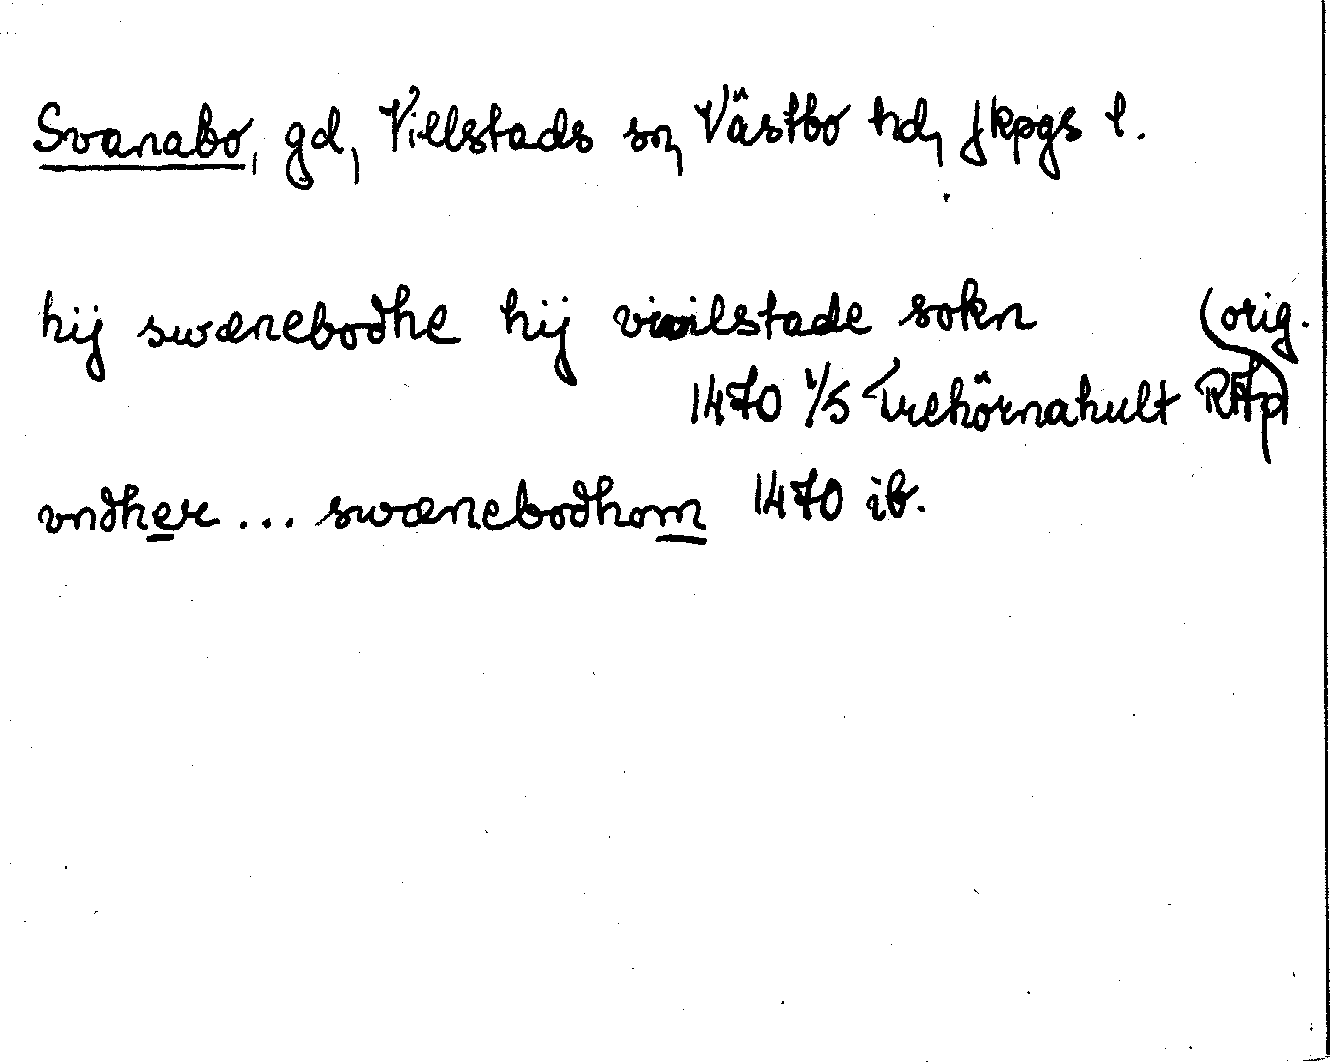 Svanabo, gd, Villstads sn, Västbo hd, Jkpgs l.
hij swænebodhe hij viilstade sokn (orig.
1470 1/5 Trehörnahult RAp)
vndher ... swænebodhom 1470 ib.